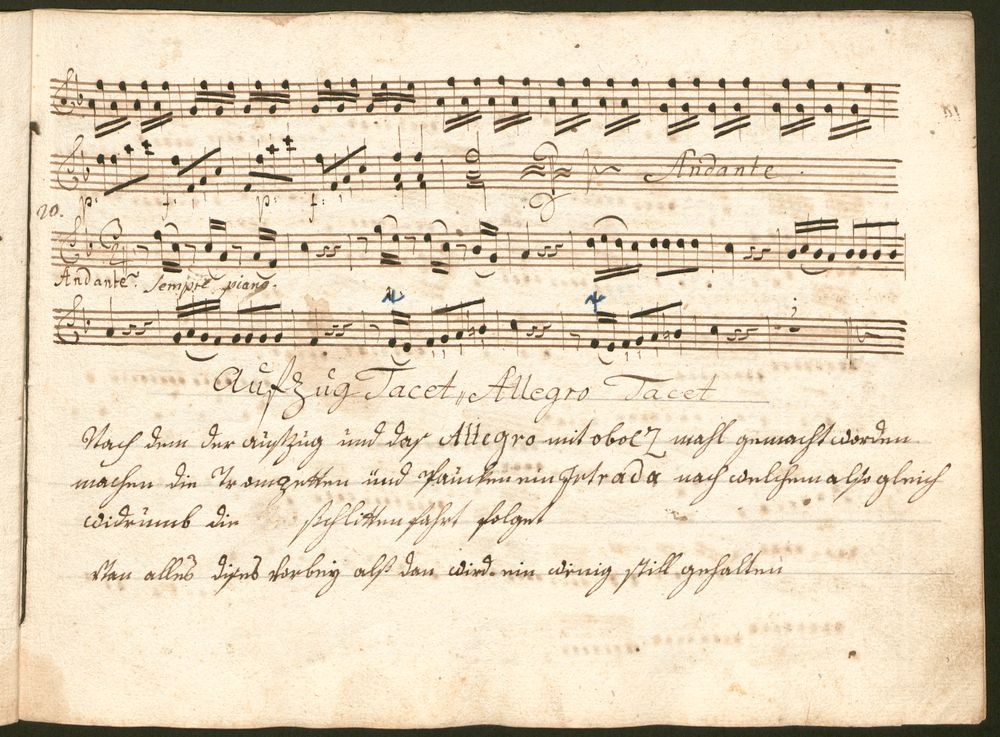 Andante
p: f: p: f:
20.
Andante. Sempre piano.
Aufzug Tacet, Allegro Tacet
Nach dem der aufzug und das Allegro mit oboe 2 mahl gemacht worden
machen die Trompetten und Paucken ein Jntrada nach welchem also gleich
widrumb die schlittenfahrt folget
Wan alles dises vorbey alß dan wird ein wenig still gehalten